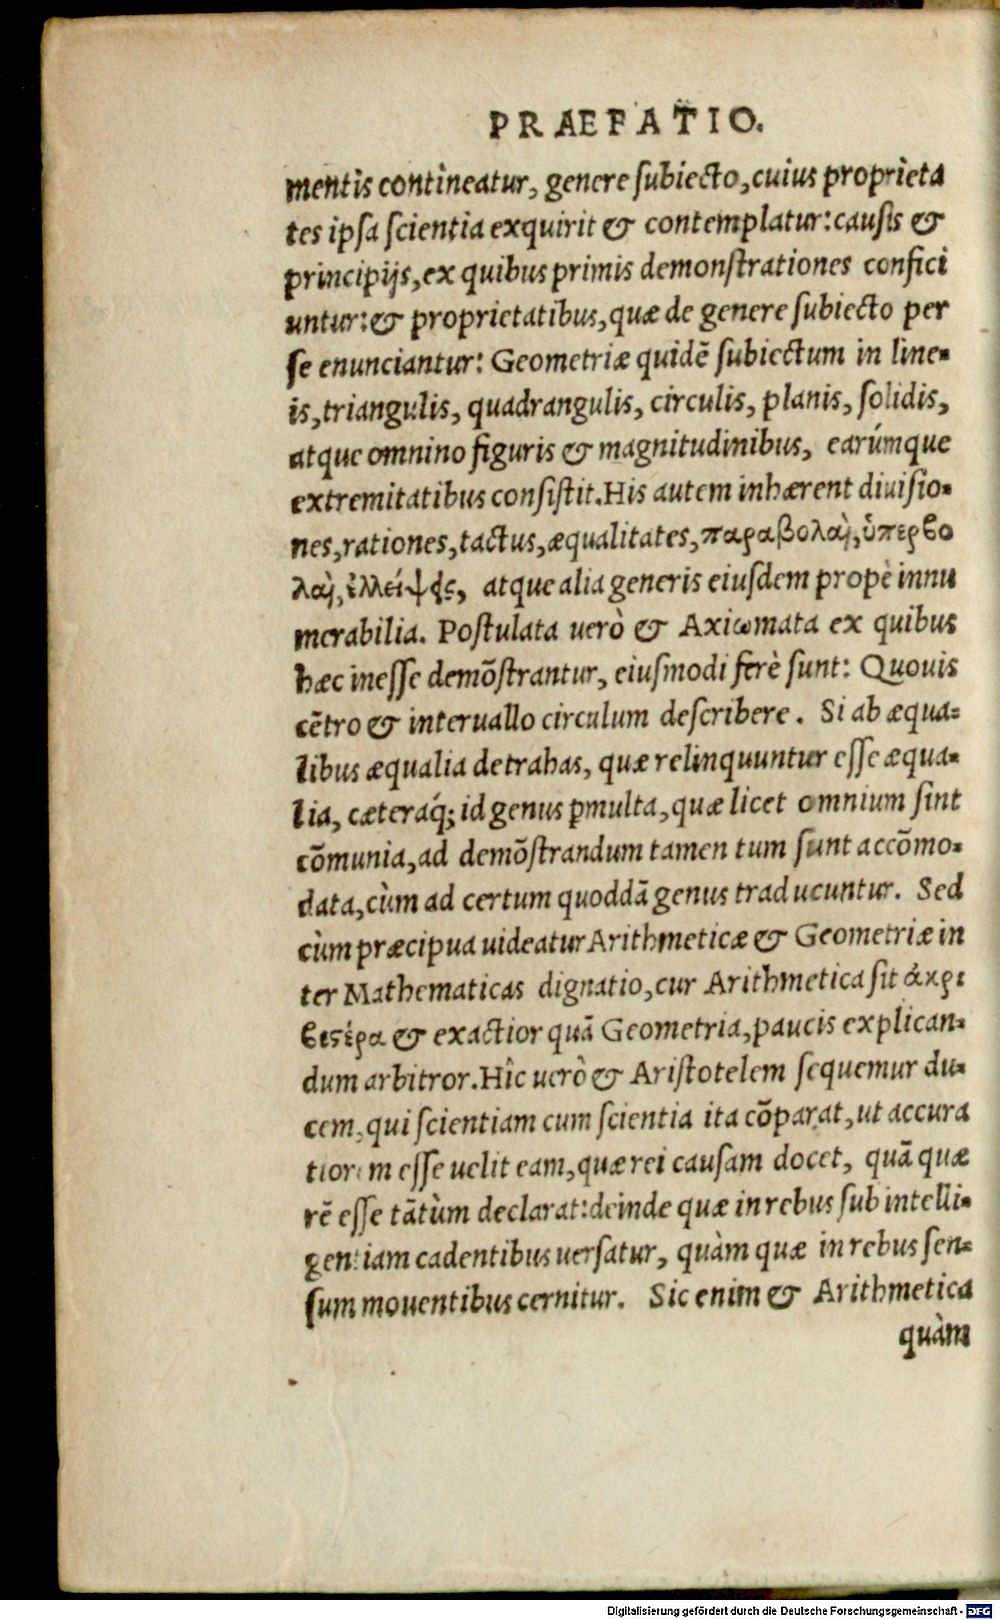 PRAEFATIO.
mentis contineatur, genere ſubiecto, cuius proprieta
tes ipſa ſcientia exquirit & contemplatur: cauſis &
principijs, ex quibus primis demonſtrationes confici
untur: & proprietatibus, quæ de genere ſubiecto per
ſe enunciantur: Geometriæ quidē ſubiectum in line-
is, triangulis, quadrangulis, circulis, planis, ſolidis,
atque omnino figuris & magnitudinibus, earúmque
extremitatibus conſiſtit. His autem inhærent diuiſio-
nes, rationes, tactus, æqualitates, παραβολαὶ, ὑπερβο
λαὶ, ἐλλείψεις, atque alia generis eiuſdem propè innu
merabilia. Poſtulata uerò & Axiωmata ex quibus
hæc ineſſe demōſtrantur, eiuſmodi ferè ſunt: Quouis
cētro & interuallo circulum deſcribere. Si ab æqua-
libus æqualia detrahas, quæ relinquuntur eſſe æqua-
lia, cæteráq; id genus ꝑmulta, quæ licet omnium ſint
cōmunia, ad demōſtrandum tamen tum ſunt accōmo-
data, cùm ad certum quoddā genus traducuntur. Sed
cùm præcipua uideatur Arithmeticæ & Geometriæ in
ter Mathematicas dignatio, cur Arithmetica ſit ἀκρι
βεϛέρα & exactior quā Geometria, paucis explican-
dum arbitror. Hîc uerò & Ariſtotelem ſequemur du-
cem, qui ſcientiam cum ſcientia ita cōparat, ut accura
tiorem eſſe uelit eam, quæ rei cauſam docet, quā quæ
rē eſſe tātùm declarat: deinde quæ in rebus ſub intelli-
gentiam cadentibus uerſatur, quàm quæ in rebus ſen-
ſum mouentibus cernitur. Sic enim & Arithmetica
quàm
Digitalisierung gefördert durch die Deutsche Forschungsgemeinschaft - DFG